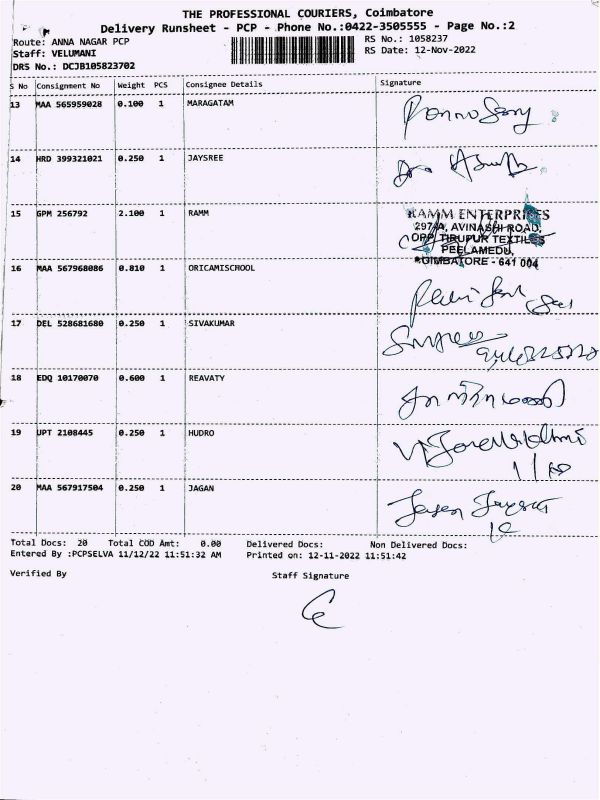 THE PROFESSIONAL COURIERS, Coimbatore
Delivery Runsheet - PCP - Phone No.:0422-3505555 - Page No.:2
Route: ANNA NAGAR PCP
Staff: VELUMANI
DRS No.: DCJB105823702
RS No.: 1058237
RS Date: 12-Nov-2022
S No Consignment No Weight PCS Consignee Details Signature
13 MAA 565959028 0.100 1 MARAGATAM
14 HRD 399321021 0.250 1 JAYSREE
15 GPM 256792 2.100 1 RAMM
RAMM ENTERPRISES
297/A, AVINASHI ROAD,
OPP. TIRUPUR TEXTILES
PEELAMEDU,
COIMBATORE - 641 004
16 MAA 567968086 0.810 1 ORICAMISCHOOL
17 DEL 528681680 0.250 1 SIVAKUMAR
18 EDQ 10170070 0.600 1 REAVATY
19 UPT 2108445 0.250 1 HUDRO
20 MAA 567917504 0.250 1 JAGAN
Total Docs: 20 Total COD Amt: 0.00 Delivered Docs: Non Delivered Docs:
Entered By :PCPSELVA 11/12/22 11:51:32 AM Printed on: 12-11-2022 11:51:42
Verified By Staff Signature